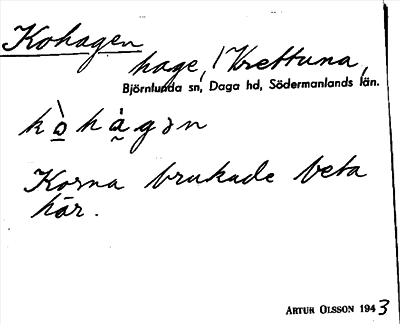 Kohagen
hage, / Krettuna,
Björnlunda sn, Daga hd, Södermanlands län.
kò̱hà̰gən
Korna brukade beta
här.
ARTUR OLSSON 1943